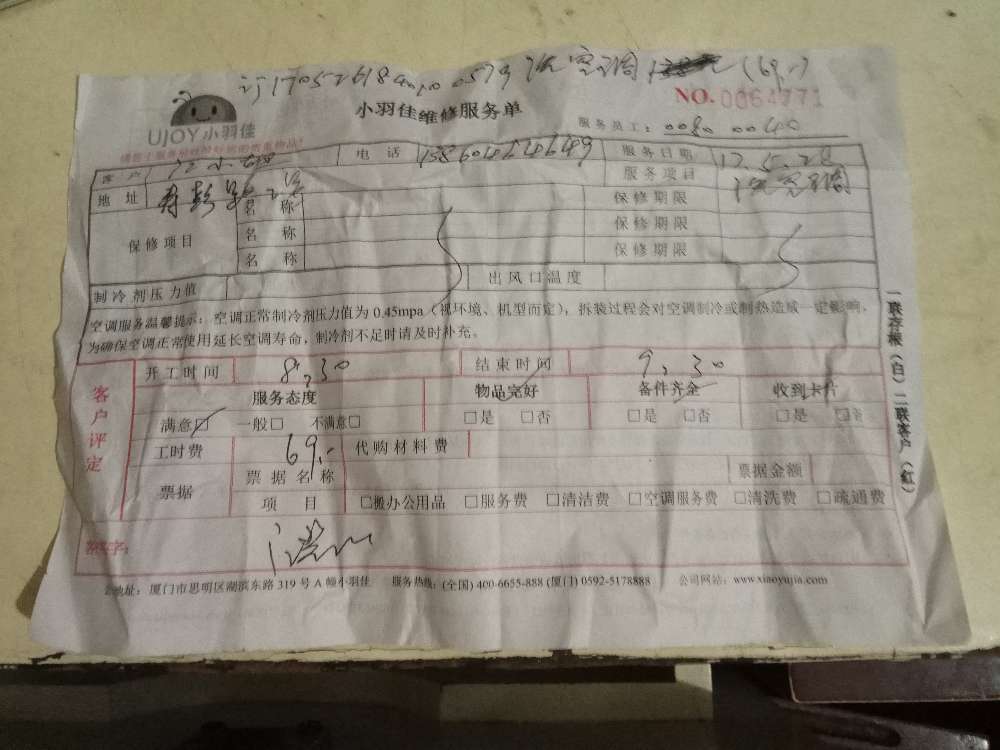 洗空调 (69.-)
NO.0064771
UJOY小羽佳
小羽佳维修服务单
服务员工: 0080 0040
客户 电话 服务日期 17.5.28
地址 服务项目 洗空调
保修项目 名称 保修期限
名称 保修期限
名称 保修期限
制冷剂压力值 出风口温度
空调服务温馨提示:空调正常制冷剂压力值为0.45mpa(视环境、机型而定),拆装过程会对空调制冷或制热造成一定影响,
为确保空调正常使用延长空调寿命,制冷剂不足时请及时补充。
客户评定
开工时间 8:30 结束时间 9:30
服务态度 物品完好 备件齐全 收到卡片
满意□ 一般□ 不满意□ □是 □否 □是 □否 □是 □否
工时费 69.- 代购材料费
票据 票据名称 票据金额
项目 □搬办公用品 □服务费 □清洁费 □空调服务费 □清洗费 □疏通费
签字:
地址:厦门市思明区湖滨东路319号A幢小羽佳 服务热线:(全国)400-6655-888(厦门)0592-5178888 公司网站:www.xiaoyujia.com
一联存根(白)二联客户(红)